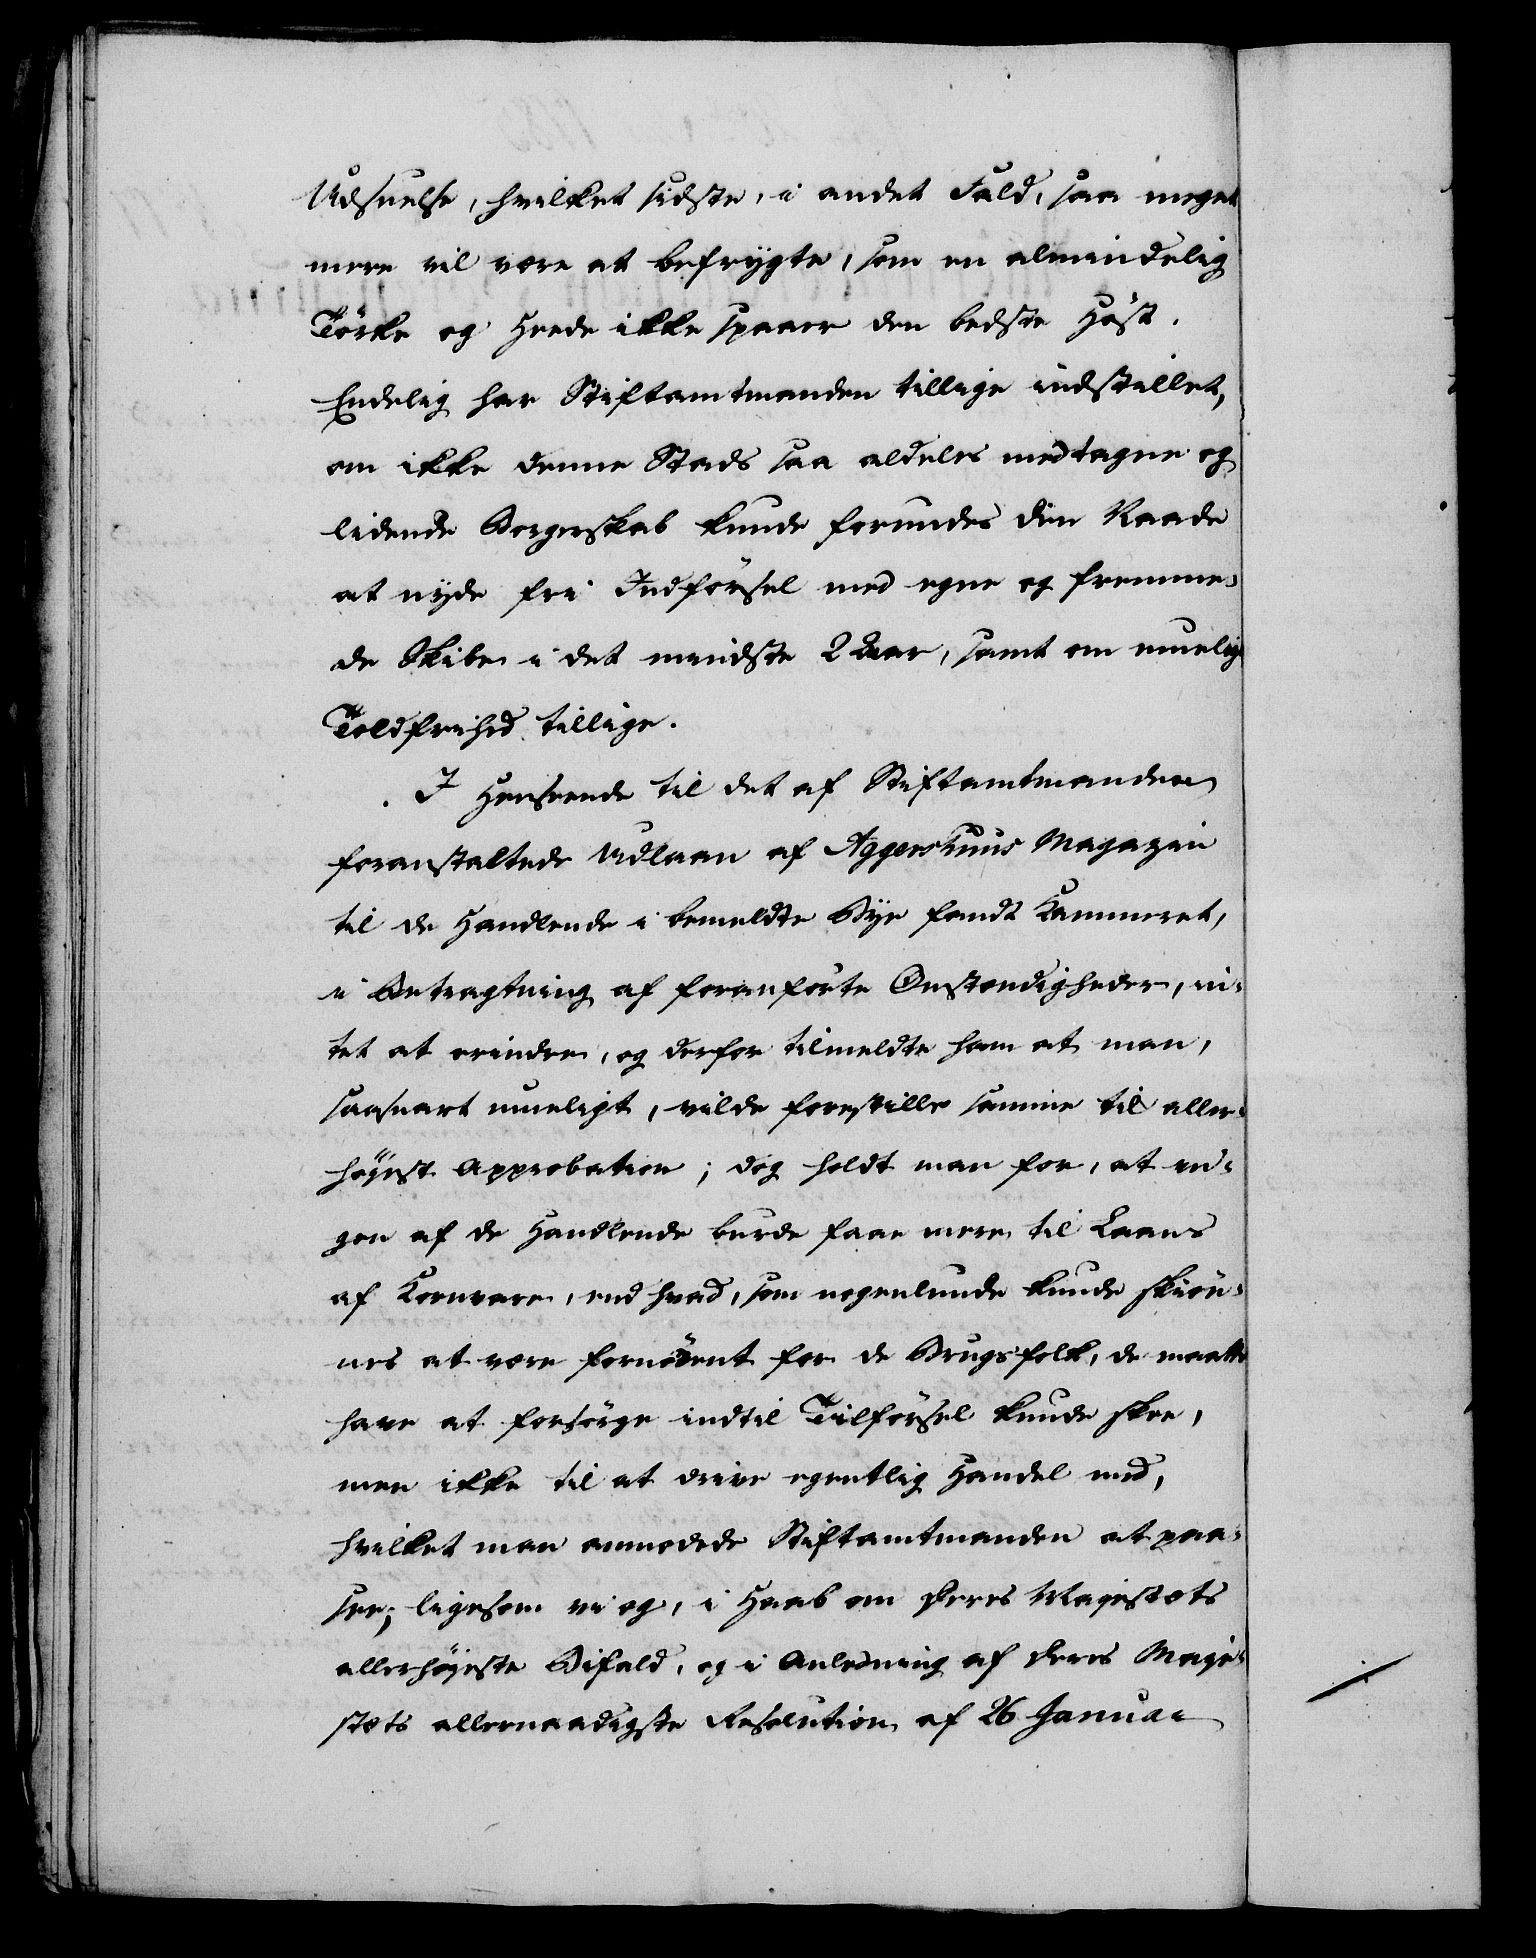 Udsuelse, hvilket sidste, i andet Fald, saa meget
mere vil være at befrygte, som en almindelig
Törke og Heede ikke spaaer den bedste Höst.
Endelig har Stiftamtmanden tillige indstillet,
om ikke denne Stads saa aldeles medtagne og
lidende Borgerskab kunde forundes den Naade
at nyde fri Indförsel med egne og fremme-
de Skibe i det mindste 2 Aar, samt om muelig
Toldfrihed tillige.
I Henseende til det af Stiftamtmanden
foranstaltede Udlaan af Aggershuus Magazin
til de Handlende i bemeldte Bye fandt Kammeret,
i Betragtning af foranförte Omstændigheder, in-
tet at erindre, og derfor tilmeldte ham at man,
saasnart mueligt, vilde forestille samme til aller-
höyest Approbation; dog holdt man for, at in-
gen af de Handlende burde faae mere til Laans
af Kornvare, end hvad, som nogenlunde kunde skiön-
nes at være fornödent for de Brugsfolk, de maatte
have at forsörge indtil Tilförsel kunde skee,
men ikke til at drive egentlig Handel med,
hvilket man anmodede Stiftamtmanden at paa-
see; ligesom vi og, i Haab om Deres Majestæts
allerhöjeste Bifald, og i Anledning af Deres Maje-
stæts allernaadigste Resolution af 26 Januar